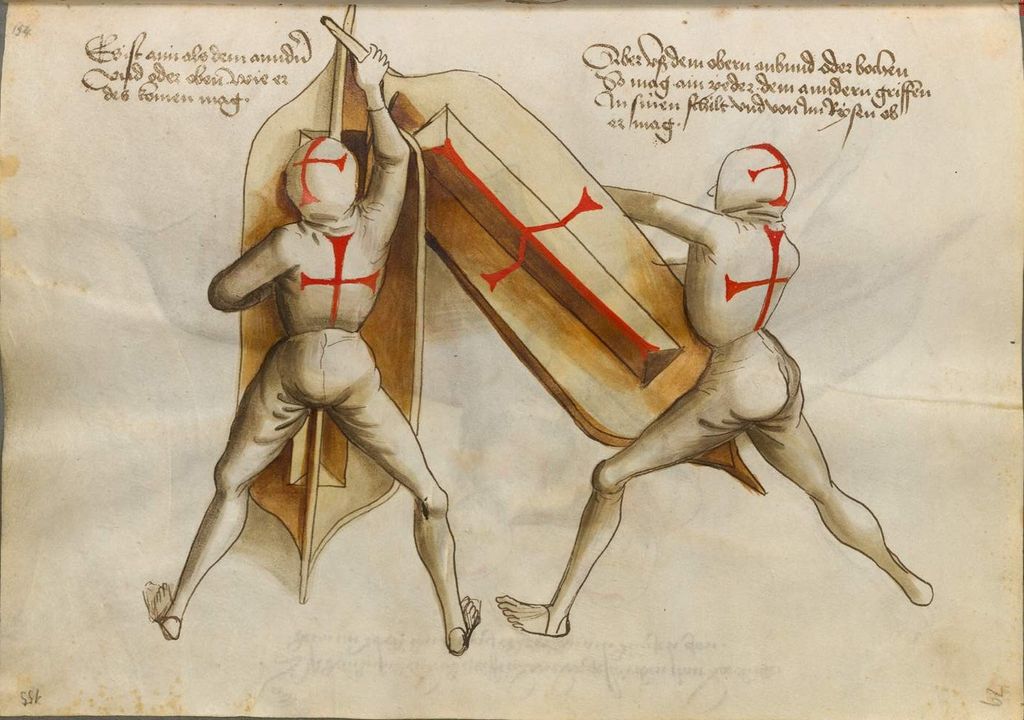 154
Es ist ain als dem anndn̄
Und oder oben wie er
des komen mag.
Aber vß dem obern anbund oder bochen
So mag ain yeder dem anndern griffen
In sinen schilt vnd von Im Rysen ob
er mag.
155